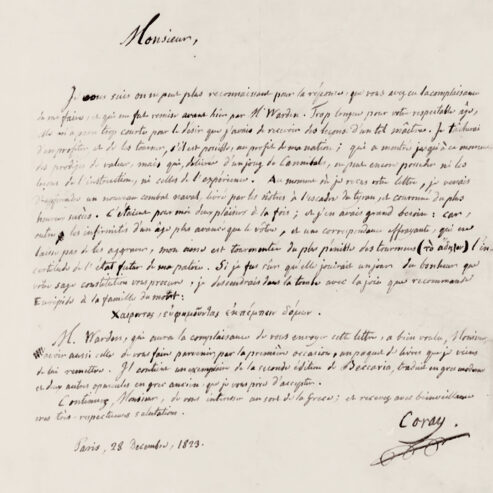 Monsieur,
Je vous suis on ne peut plus reconnaissant pour la réponse, que vous avez eu la complaisance
de me faire, et qui me fut remise avant hier par M. Warden. Trop longue pour votre respectable âge,
elle m'a paru trop courte par le desir que j'avais de recevoir des leçons d'un tel maitre. Je tâcherai
d'en profiter et de les tourner, s'il est possible, au profit de ma nation; qui a montré jusqu'à ce moment
des prodiges de valeur, mais qui, délivrée d'un joug de Cannibals, ne peut encore posséder ni les
leçons de l'instruction, ni celles de l'expérience. Au moment où je reçus votre lettre, je venais
d'apprendre un nouveau combat naval, livré par les nôtres à l'escadre du tyran, et couronné du plus
heureux succès. C'étaient pour moi deux plaisirs à la fois; et j'en avais grand besoin: car,
outre les infirmités d'un âge plus avancé que le votre, et une correspondance effrayante, qui ne
laisse pas de les aggraver, mon ame est tourmentée du plus pénible des tourmens l'in-
certitude de l'état futur de ma patrie. Si je fus sûr qu'elle jouirait un jour du bonheur que
votre sage constitution vous procure, je descendrais dans la tombe avec la joie que recommande
Euripide à la famille du mort:
Χαίροντας, εὐφημοῦντας ἐκπέμπειν δόμων.
M. Warden, qui aura la complaisance de vous envoyer cette lettre, a bien voulu, Monsieur,
avoir aussi celle de vous faire parvenir par la première occasion, un paquet de livres que je viens
de lui remettre. Il contient un exemplaire de la seconde édition de Beccaria, traduit en grec moderne
et deux autres opuscules en grec ancien, que je vous prie d'accepter.
Continuez, Monsieur, de vous intéresser au sort de la Grèce; et recevez avec bienveillance
mes très-respectueuses salutations.
Coray.
Paris, 28 Decembre, 1823.